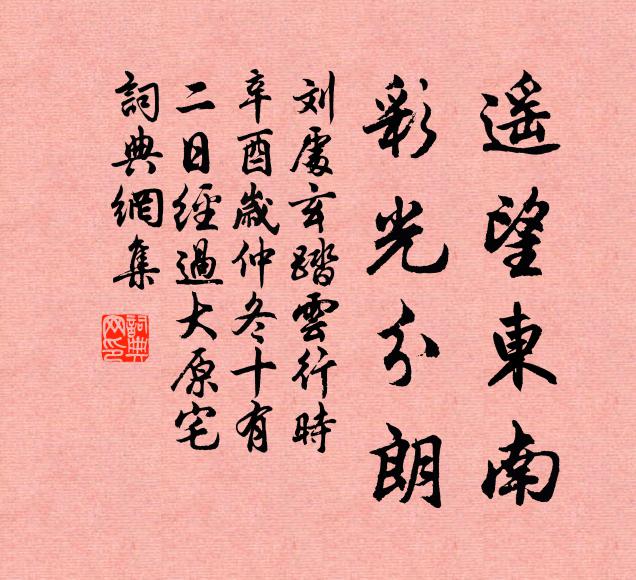 遥望東南
彩光分朗
刘處玄踏雲行時
辛酉歳仲冬十有
二日經過大原宅
詞典網集
詞典
网印